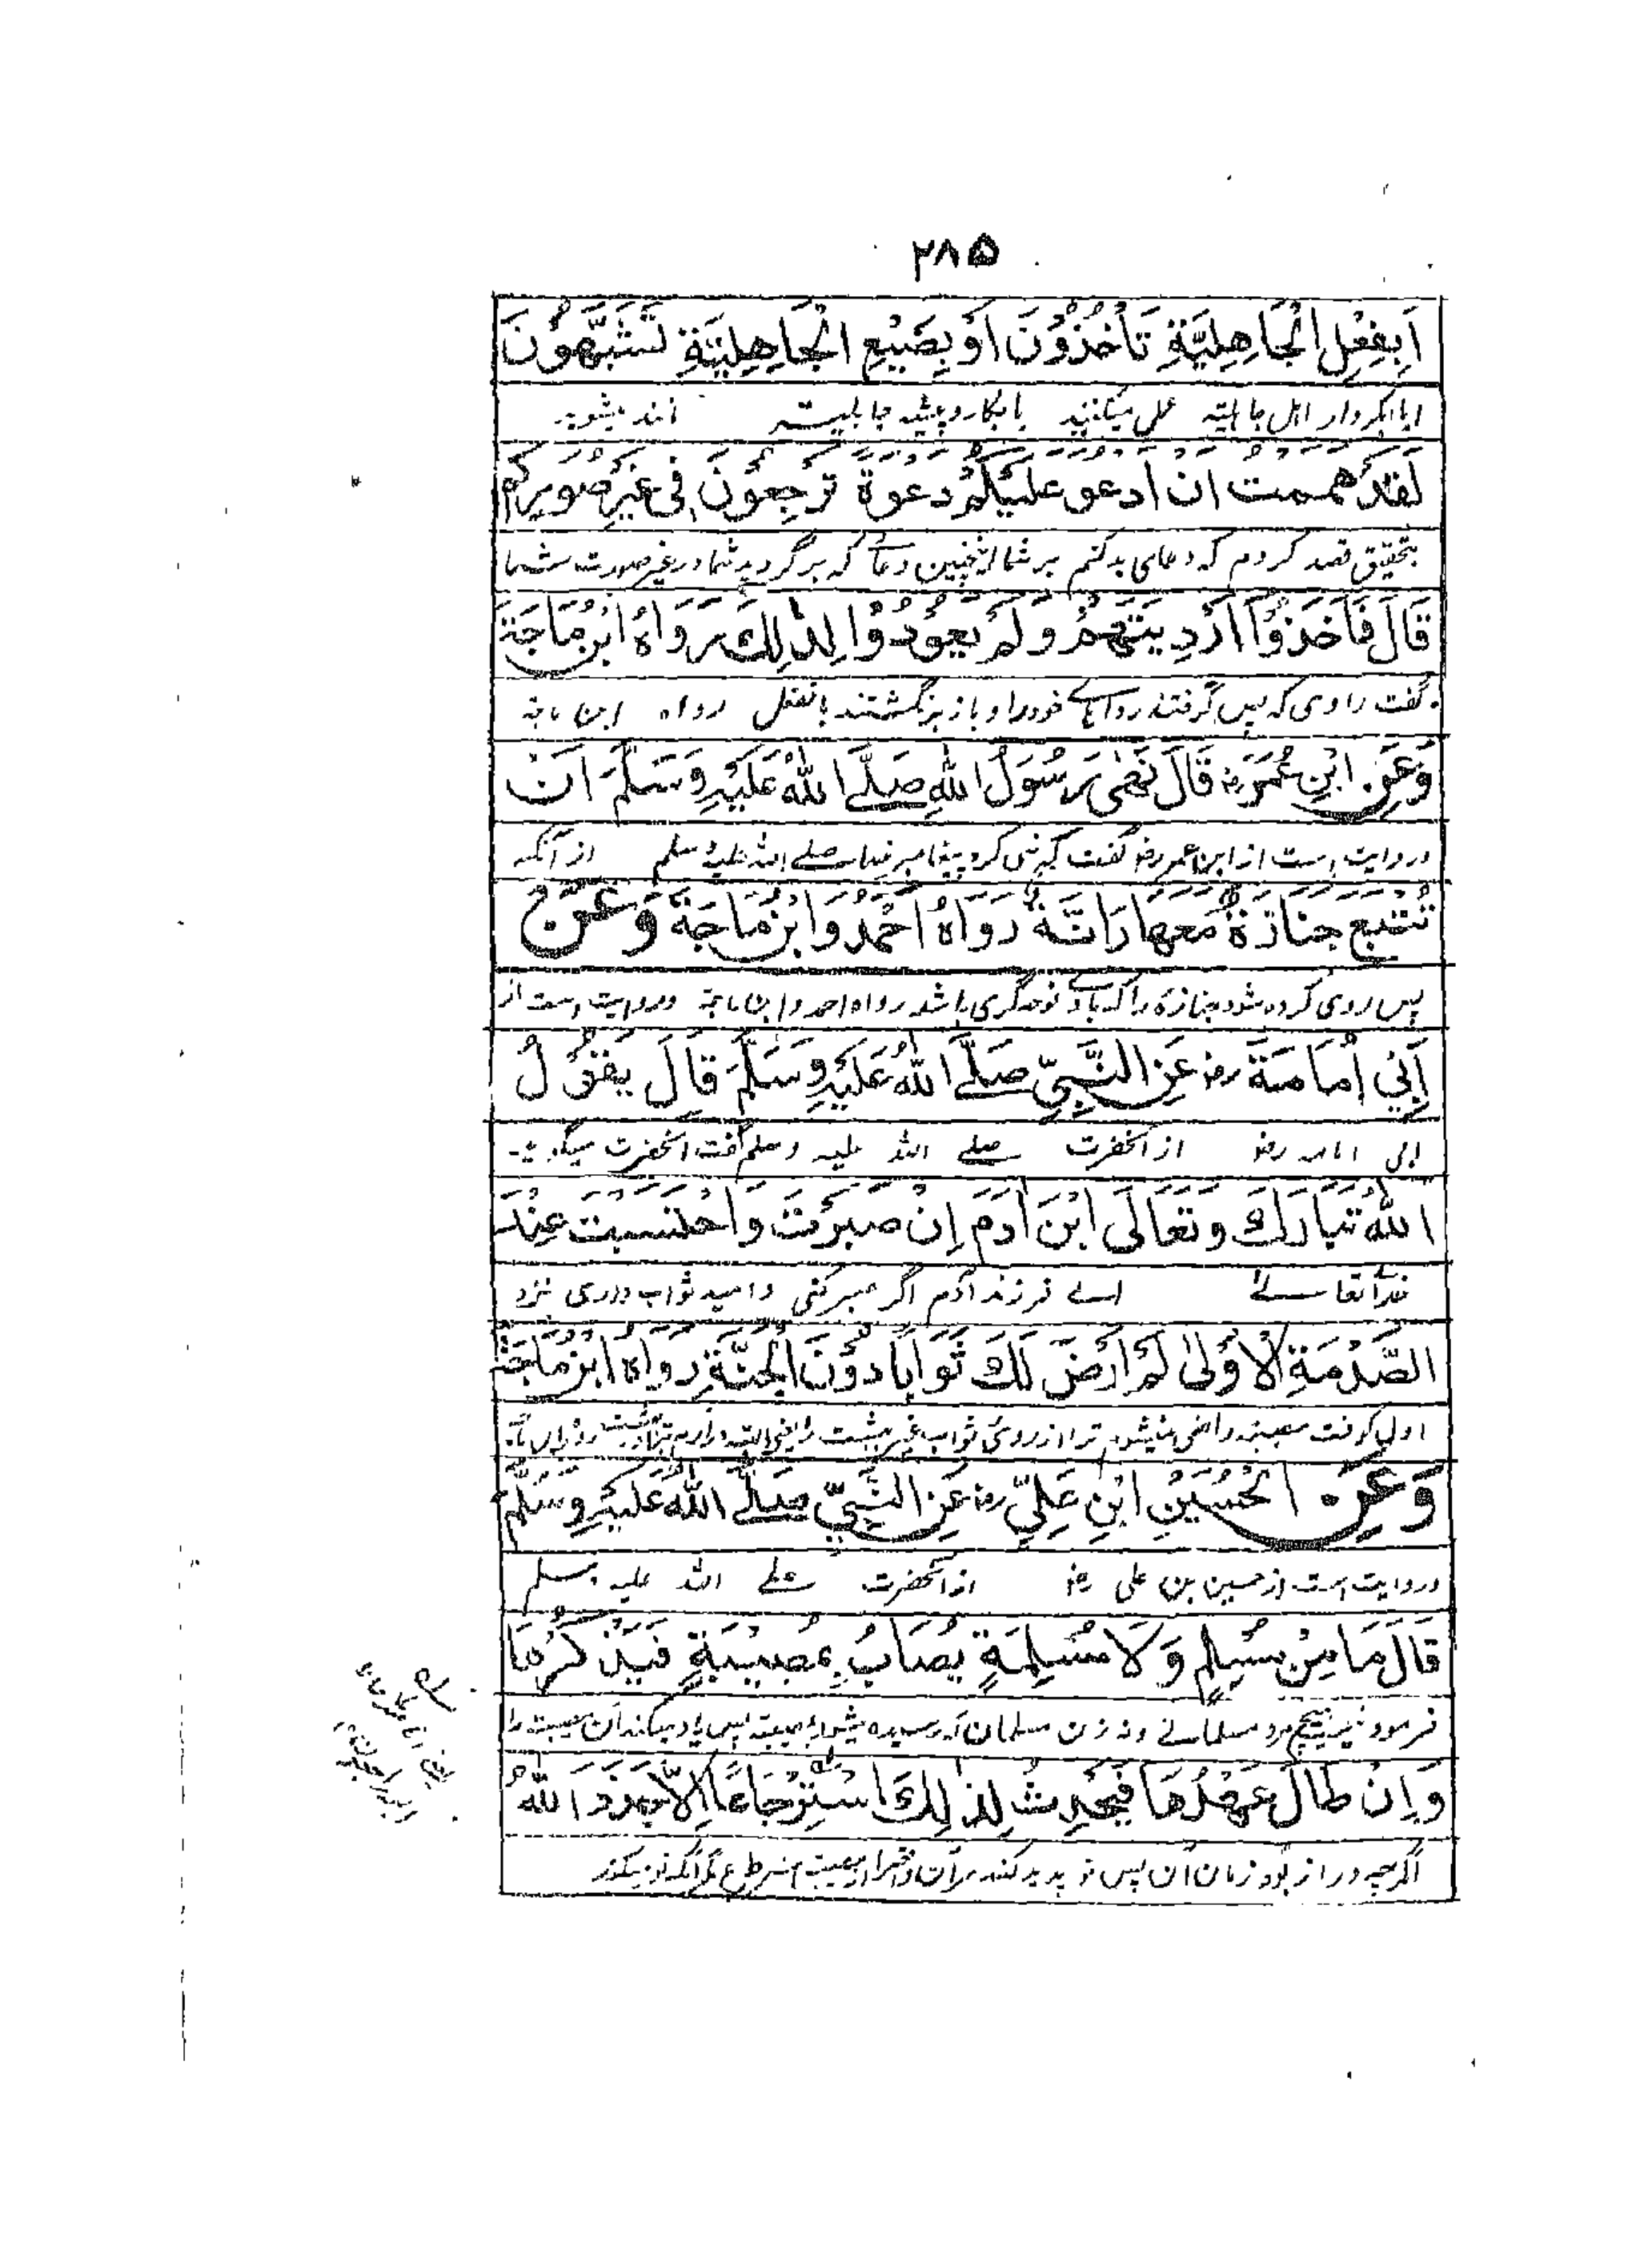 ۲۸۵
اَبِفِعْلِ الْجَاهِلِيَّةِ تَأْخُذُوْنَ اَوْ بِصَنِيْعِ الْجَاهِلِيَّةِ تَشَبَّهُوْنَ
ایا بکردار اهل جاهلیته عمل میکنید یا بکار و پیشه جاهلیت مانند میشوید
لَقَدْ هَمَمْتُ اَنْ اَدْعُوَ عَلَيْكُمْ دَعْوَةً تَرْجِعُوْنَ فِیْ غَيْرِ صُوَرِكُمْ
بتحقیق قصد کردم که دعای بد کنم بر شما اینچنین دعائے که برگردید شما در غیر صورت شما
قَالَ فَاَخَذُوْا اَرْدِيَتَهُمْ وَلَمْ يَعُوْدُوْا لِذٰلِكَ رَوَاهُ ابْنُ مَاجَةَ
گفت راوی که پس گرفتند رداهائے خود را و باز برنگشتند بانفعل رواه ابن ماجة
وَعَنِ ابْنِ عُمَرَ رض قَالَ نَهٰى رَسُوْلُ اللّٰهِ صَلَّے اللّٰهُ عَلَيْهِ وَسَلَّمَ اَنْ
و روایت است از ابن عمر رض گفت که نهی کرد پیغامبر خدا صلے الله علیه وسلم از آنکه
تُتْبَعَ جَنَازَةٌ مَعَهَا رَانَّةٌ رَوَاهُ اَحْمَدُ وَابْنُ مَاجَةَ وَعَنْ
پس روی کرده شود جنازه را که با نوحه گری باشد رواه احمد و ابن ماجة و روایت است از
اَبِيْ اُمَامَةَ رض عَنِ النَّبِيِّ صَلَّے اللّٰهُ عَلَيْهِ وَسَلَّمَ قَالَ يَقُوْلُ
ابی امامه رض از آنحضرت صلے الله علیه وسلم گفت آنحضرت میگوید
اللّٰهُ تَبَارَكَ وَتَعَالَى ابْنَ اٰدَمَ اِنْ صَبَرْتَ وَاحْتَسَبْتَ عِنْدَ
خدا تعالے اے فرزند آدم اگر صبر کنی و امید ثواب داری نزد
الصَّدْمَةِ الْاُوْلٰى لَمْ اَرْضَ لَكَ ثَوَابًا دُوْنَ الْجَنَّةِ رَوَاهُ ابْنُ مَاجَةَ
اول کوفت مصیبت راضی نمیشوم ترا از روی ثواب غیر بهشت
وَعَنِ الْحُسَيْنِ ابْنِ عَلِيٍّ رض عَنِ النَّبِيِّ صَلَّے اللّٰهُ عَلَيْهِ وَسَلَّمَ
و روایت است از حسین بن علی رض از آنحضرت صلے الله علیه وسلم
قَالَ مَا مِنْ مُسْلِمٍ وَلَا مُسْلِمَةٍ يُصَابُ بِمُصِيْبَةٍ فَيَذْكُرُهَا
فرمود نیست هیچ مرد مسلمانے و نه زن مسلمان که رسیده میشود بمصیبت پس یاد میکند آن مصیبت را
وَاِنْ طَالَ عَهْدُهَا فَيُحْدِثُ لِذٰلِكَ اسْتِرْجَاعًا اِلَّا جَدَّدَ اللّٰهُ
اگرچه دراز بود زمان آن پس نو پدید کند مرآن را